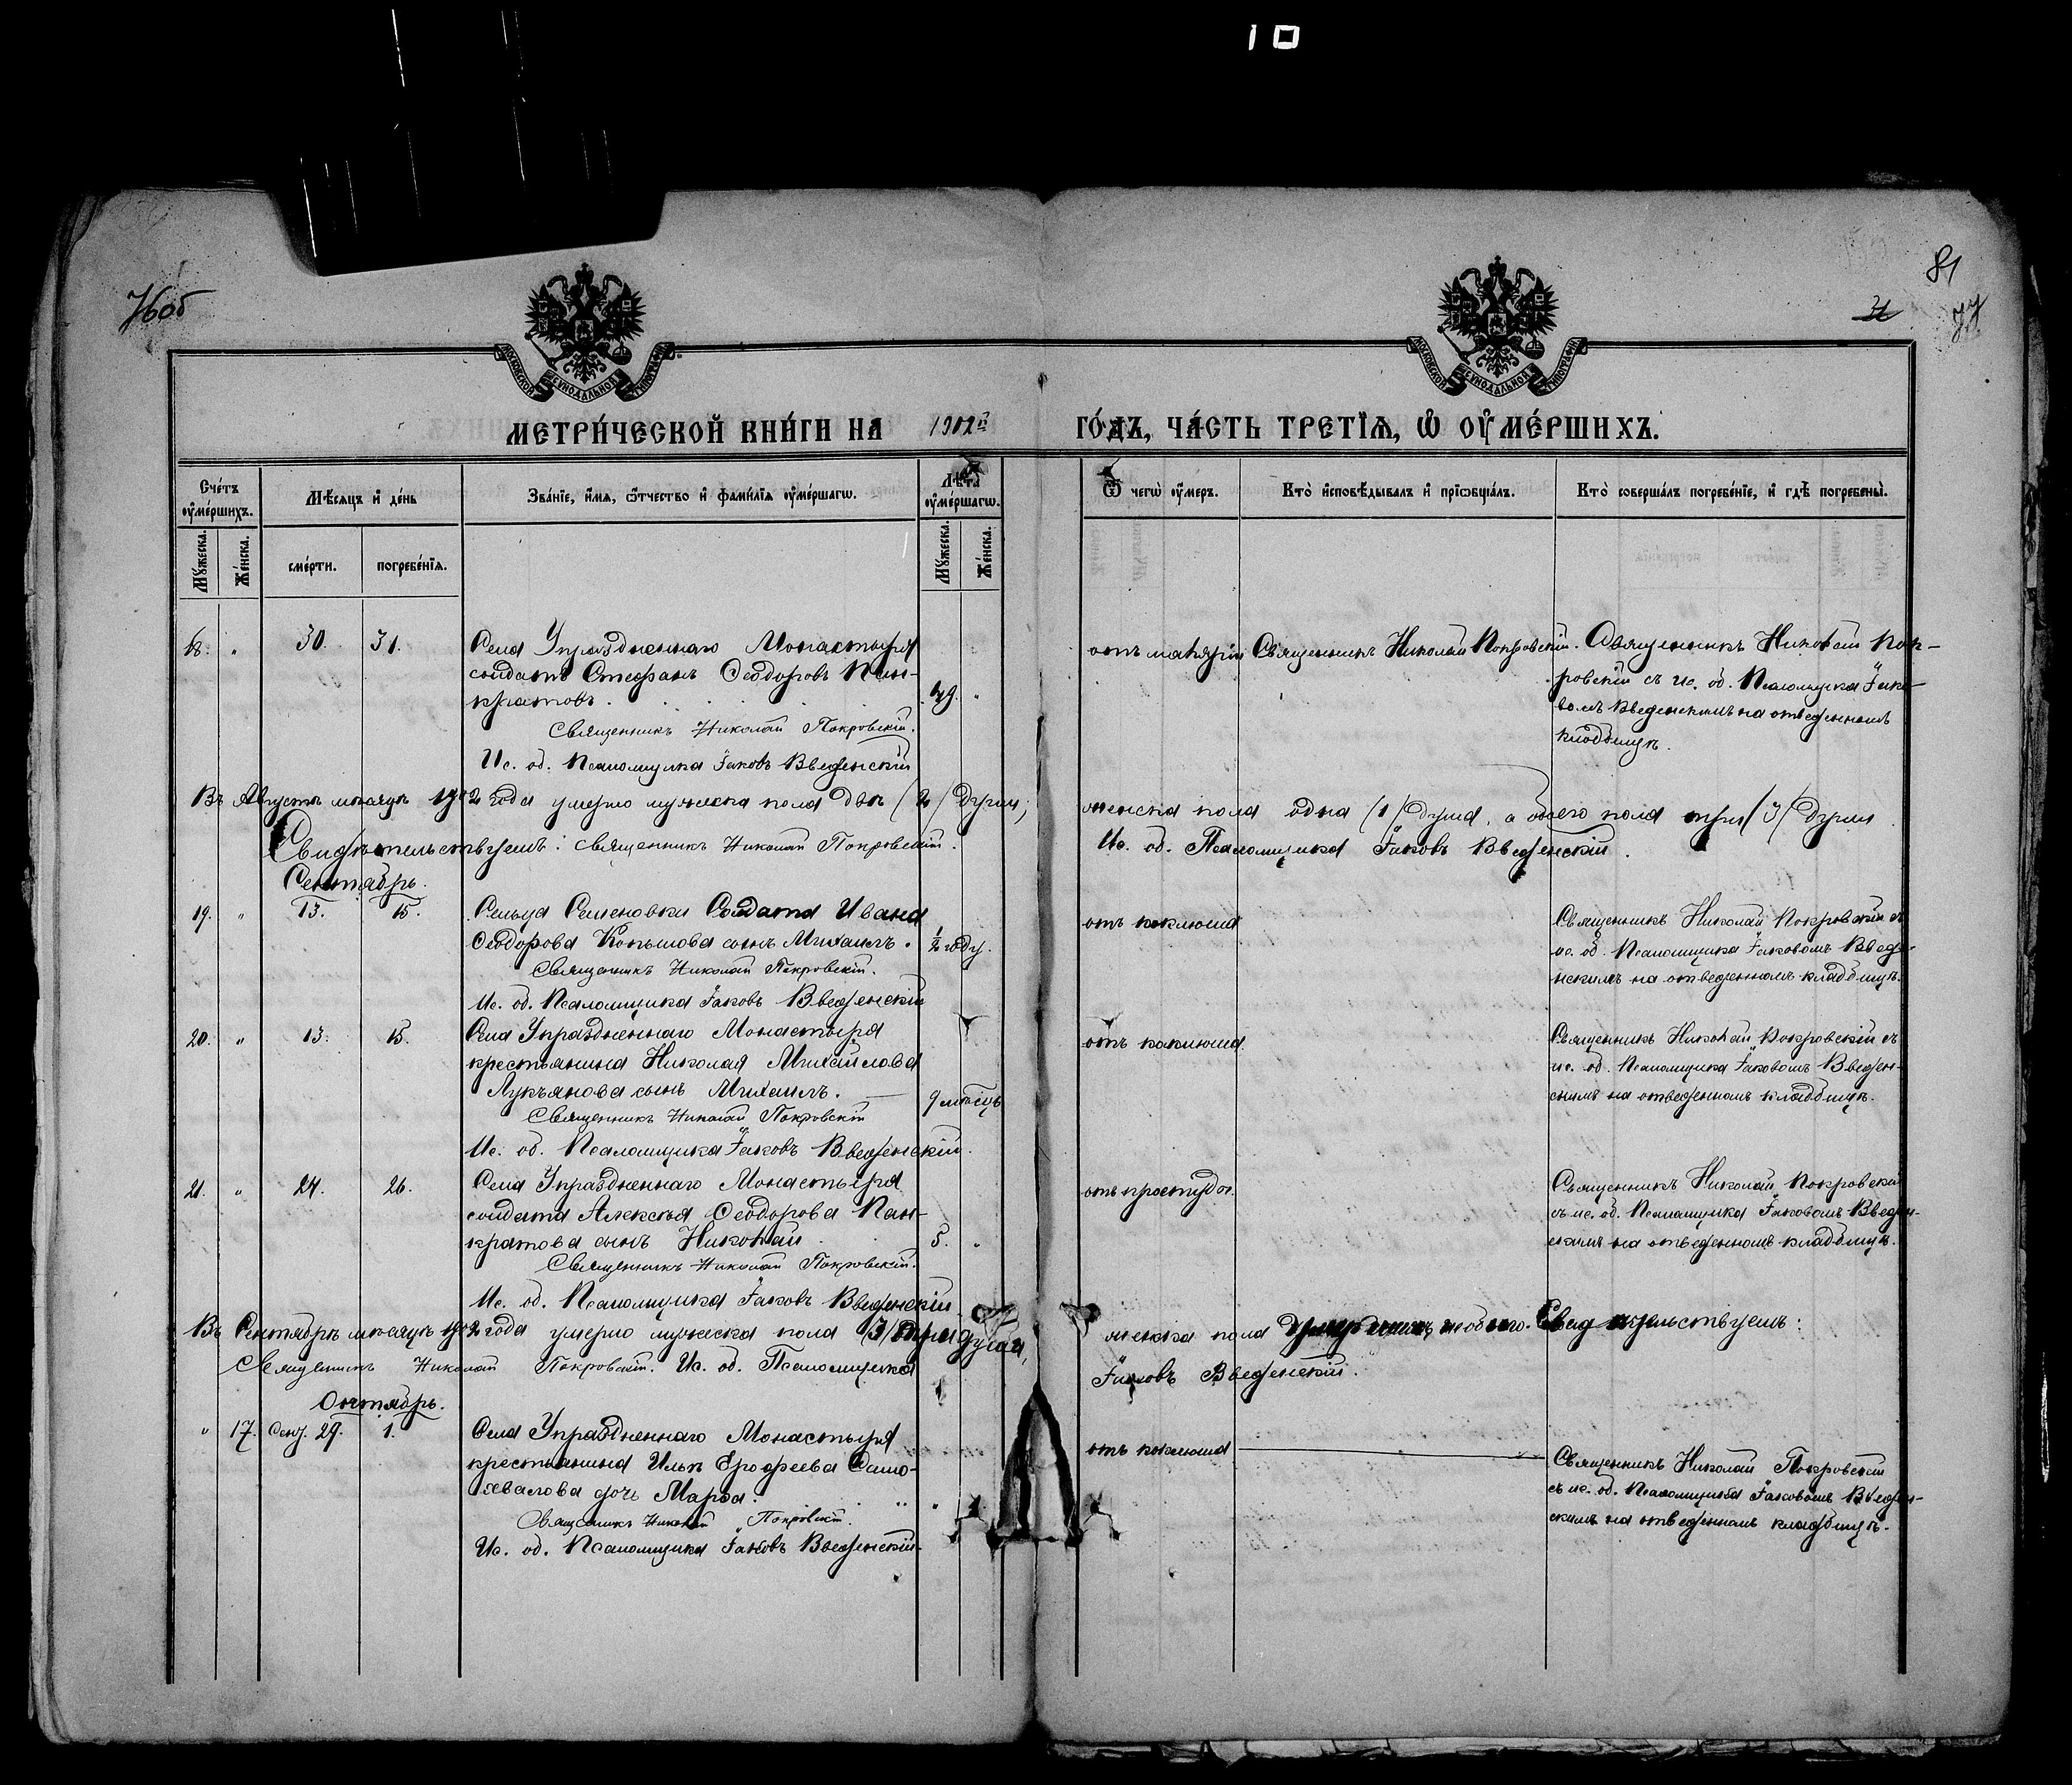 10
76об
81
77
МОСКОВСКОЙ СѴНОДАЛЬНОЙ ТИПОГРАФІИ
МОСКОВСКОЙ СѴНОДАЛЬНОЙ ТИПОГРАФІИ
МЕТРИ́ЧЕСКОЙ КНИ́ГИ НА 1902й ГО́ДЪ, ЧА́СТЬ ТРЕТІ́Ѧ, Ѡ҆ ОУ҆МЕ́РШИХЪ.
Сче́тъ оу҆ме́ршихъ.
Мѣ́сяцъ и҆ де́нь
Зва́ніе, и҆́мя, ѻ҆́тчество и҆ фами́лія оу҆ме́ршагѡ.
Лѣ́та оу҆ме́ршагѡ.
Ѿ чегѡ̀ оу҆́меръ.
Кто̀ и҆сповѣ́дывалъ и҆ прїѡбща́лъ.
Кто̀ соверша́лъ погребе́нїе, и҆ гдѣ̀ погребены̀.
Мꙋ́жеска.
Же́нска.
сме́рти.
погребе́нїѧ.
Мꙋ́жеска.
Же́нска.
18. " 30. 31. Села Упраздненнаго Монастыря
солдатъ Стефанъ Ѳеодоровъ Пан-
кратовъ.
Священникъ Николай Покровскій.
Ис. об. Псаломщика Іаковъ Введенскій
Священникъ Николай Покровскій.
Священникъ Николай Пок-
ровскій съ ис. об. Псаломщика Іако-
вомъ Введенскимъ на отведенномъ
кладбищѣ.
Въ Августѣ мѣсяцѣ 1902 года умерло мужеска пола двѣ (2) души; женска пола одна (1) душа, а обоего пола три (3) души
Свидѣтельствуемъ: священникъ Николай Покровскій. Ис. об. Псаломщика Іаковъ Введенскій.
Сентябрь.
19. " 13. 15. Сельца Семеновки Солдата Ивана
Ѳеодорова Копылова сынъ Михаилъ. ½ году.
Священникъ Николай Покровскій.
Ис. об. Псаломщика Іаковъ Введенскій
отъ коклюша
Священникъ Николай Покровскій съ
ис. об. Псаломщика Іаковомъ Введе-
нскимъ на отведенномъ кладбищѣ.
20. " 13. 15. Села Упраздненнаго Монастыря
крестьянина Николая Михайлова
Лукьянова сынъ Михаилъ. 9 мѣсяц.
Священникъ Николай Покровскій
Ис. об. Псаломщика Іаковъ Введенскій.
отъ коклюша.
Священникъ Николай Покровскій съ
ис. об. Псаломщика Іаковомъ Введен-
скимъ на отведенномъ кладбищѣ.
21. " 24. 26. Села Упраздненнаго Монастыря
солдата Алексѣя Ѳеодорова Пан-
кратова сынъ Николай 5. "
Священникъ Николай Покровскій.
Ис. об. Псаломщика Іаковъ Введенскій
отъ простуды.
Священникъ Николай Покровскій
съ ис. об. Псаломщика Іаковомъ Введен-
скимъ на отведенномъ кладбищѣ.
Въ Сентябрѣ мѣсяцѣ 1902 года умерло мужеска пола (3) три души, женска пола Свидѣтельствуемъ:
Священникъ Николай Покровскій. Ис. об. Псаломщика Іаковъ Введенскій.
Октябрь.
" 17. Сент. 29. 1. Села Упраздненнаго Монастыря
крестьянина Ильи Ерофеева Само-
хвалова дочь Марфа.
Священникъ Николай Покровскій.
Ис. об. Псаломщика Іаковъ Введенскій.
отъ коклюша
Священникъ Николай Покровскій
съ ис. об. Псаломщика Іаковомъ Введен-
скимъ на отведенномъ кладбищѣ.